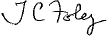 J C Foley